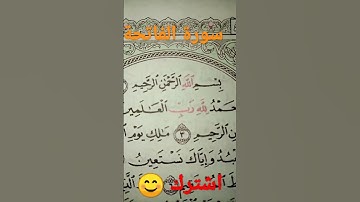 سورة الفاتحة
بِسْمِ اللَّهِ الرَّحْمَٰنِ الرَّحِيمِ
حَمْدُ لِلَّهِ رَبِّ الْعَالَمِينَ
الرَّحِيمِ ٣ مَالِكِ يَوْمِ
وَإِيَّاكَ نَسْتَعِينُ
اشترك 😊